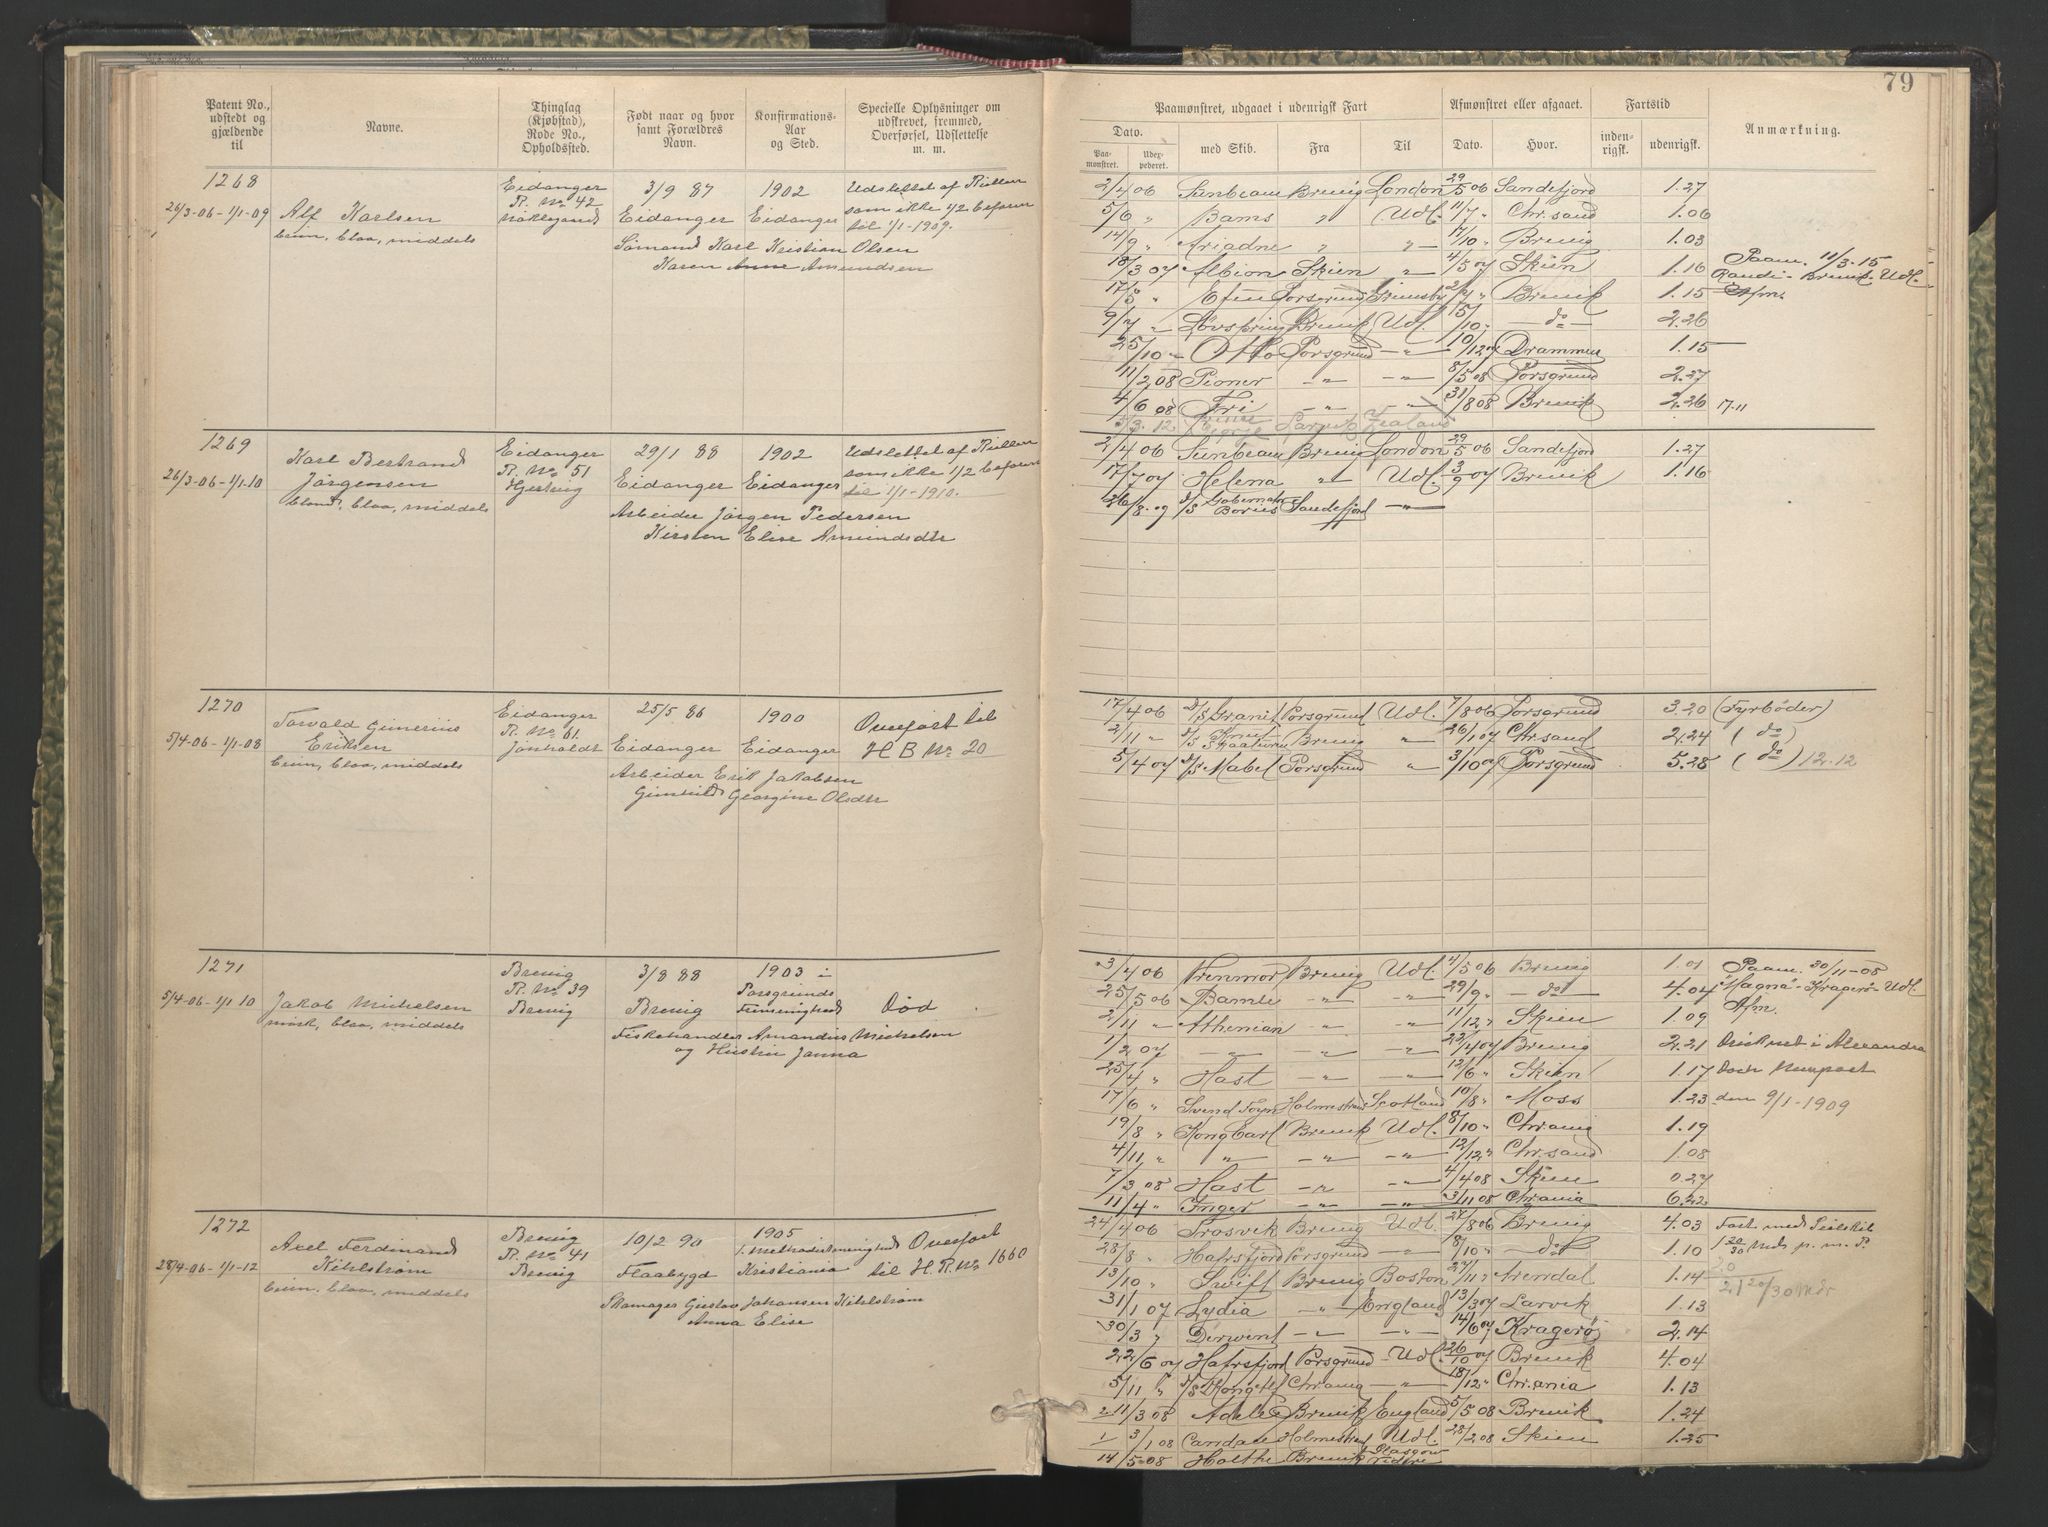 79
Patent No., udstedt og gjældende til
Navne.
Thinglag (Kjøbstad), Rode No., Opholdssted.
Født naar og hvor samt Forældres Navn.
Konfirmations-Aar og Sted.
Specielle Oplysninger om udskrevet, fremmed, Overførsel, Udslettelse m. m.
Paamønstret, udgaaet i udenrigsk Fart
Afmønstret eller afgaaet.
Fartstid
Anmærkning.
Dato.
Paa-mønstret.
Udex-pederet.
med Skib.
Fra
Til
Dato.
Hvor.
inden-rigsk.
udenrigsk.
1268
26/3-06-1/1-09
Alf Karlsen
brun, blaa, middels
Eidanger
R. No 42
3/9 87
Eidanger
1902
Eidanger
Udslettet af Rullen
som ikke 1/2 befaren
til 1/1-1909.
Sømand Karl Kristian Olsen
Karen Anne Amundsen
2/4 06 Sunbeam Brevig London 29/5 06 Sandefjord 1.27
5/6 " Bams " Udl. 11/7 " Chr.sand 1.06
14/9 " Ariadne " " 17/10 " Brevig 1.03
18/3 07 Albion Skien " 4/5 07 Skien 1.16
Paam. 11/3-15
Randi - Brevik - Udl.
Afm.
17/5 " Porsgrund Grimsby Brevik 1.15
9/7 " Brevik Udl. 15/10 " do 2.26
25/10 " Otto Porsgrund " 10/12 07 Drammen 1.15
11/2 08 Pioner " " 8/5 08 Porsgrund 2.27
4/6 08 Fri " " 31/8 08 Brevik 2.26 17.11
1269
26/3-06-1/1-10
Karl Bertrand
Jørgensen
blond, blaa, middels
Eidanger
R. No 51
29/1 88
Eidanger
1902
Eidanger
Udslettet af Rullen
som ikke 1/2 befaren
til 1/1-1910.
Arbeider Jørgen Pedersen
Kirsten Elise Amundsdtr
2/4 06 Sunbeam Brevig London 29/5 06 Sandefjord 1.27
17/7 07 Helena " Udl. 3/9 07 Brevik 1.16
26/8 09 d/s Gobernator Bories Sandefjord "
1270
5/4-06-1/1-08
Torvald Gunerius
Eriksen
brun, blaa, middels
Eidanger
R. No 61.
Jønholdt
25/5 86
Eidanger
1900
Eidanger
Overført til
H B No 20
Arbeider Erik Jakobsen
Gunhild Georgine Olsdtr
17/4 06 d/s Granit Porsgrund Udl. 7/8 06 Porsgrund 3.20 (Fyrbøder)
2/11 " d/s Knut Skaaluren Brevig " 26/1 07 Chr.sand 2.24 ( do )
5/4 07 d/s Mabel Porsgrund " 3/10 07 Porsgrund 5.28 ( do ) 12.12
1271
5/4-06-1/1 10
Jakob Michelsen
mørk, blaa, middels
Brevig
R. No 39
Brevig
3/8 88
Brevig
1903 i
Porsgrunds
Frimenighed
Død
Fiskehandler Amandus Michelsen
og Hustru Janna
3/4 06 Brevig Udl. 11/5 06 Brevig 1.01
25/5 06 Bamle " " 29/9 " do 4.04
2/11 " Athenian " " 11/12 " Skien 1.09
1/2 07 " " " 22/4 07 Brevig 2.21
25/4 " Hast " " 12/6 " Skien 1.17
17/6 " Svend Foyn Holmestrand Scotland 10/8 " Moss 1.23
19/8 " Kong Carl Brevik Udl. 8/10 " Chr.ania 1.19
4/11 " " " " 12/12 " Chr.sand 1.08
7/3 08 Hast " " 4/4 08 Skien 0.27
11/4 " Inger " " 3/11 08 Chr.ania 6.22
Paam. 30/11-08
"Magna" - Kragerø - Udl.
Afm.
Druknet i Alexandra
Dock Newport
den 9/1-1909
1272
28/4-06-1/1-12
Axel Ferdinand
Kihlstrøm
brun, blaa, middels
Brevig
R. No 41
Brevig
10/2 90
Flaabygd
1905
i Methodistmenighed
Kristiania
Overført
til H. R. No 1660
Skomager Gustav Johansen Kihlstrøm
Anna Elise
24/4 06 Prosvik Brevig Udl. 27/8 06 Brevig 4.03
28/8 " Hafrsfjord Porsgrund " 8/10 " do 1.10
13/10 " Swift Brevig Boston 27/11 " Arendal 1.14
31/1 07 Lydia " England 13/3 07 Larvik 1.13
30/3 " Derwent " " 14/6 07 Kragerø 2.14
22/6 07 Hafrsfjord Porsgrund Udl. 26/10 07 Brevik 4.04
5/11 " Chr.ania " 18/12 " Chr.ania 1.13
2 11/3 08 Adele Brevik England 5/5 08 Brevik 1.24
1 3/1 08 Candace Holmestrand Udl. 28/2 08 Skien 1.25
14/5-08 Holthe Brevik Glasgow
Fart med Seilskib
1 20/30 Mdr p. m. P.
20
21 20/30 Mdr